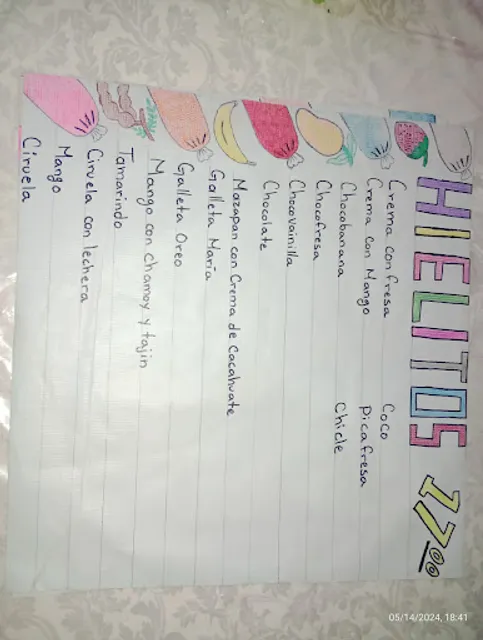 HIELITOS 17.00
Crema con fresa Coco
Crema con Mango Picafresa
Chocobanana Chicle
Chocofresa
Chocovainilla
Chocolate
Mazapan con Crema de Cacahuate
Galleta María
Galleta Oreo
Mango con chamoy y tajin
Tamarindo
Ciruela con lechera
Mango
Ciruela
05/14/2024, 18:41